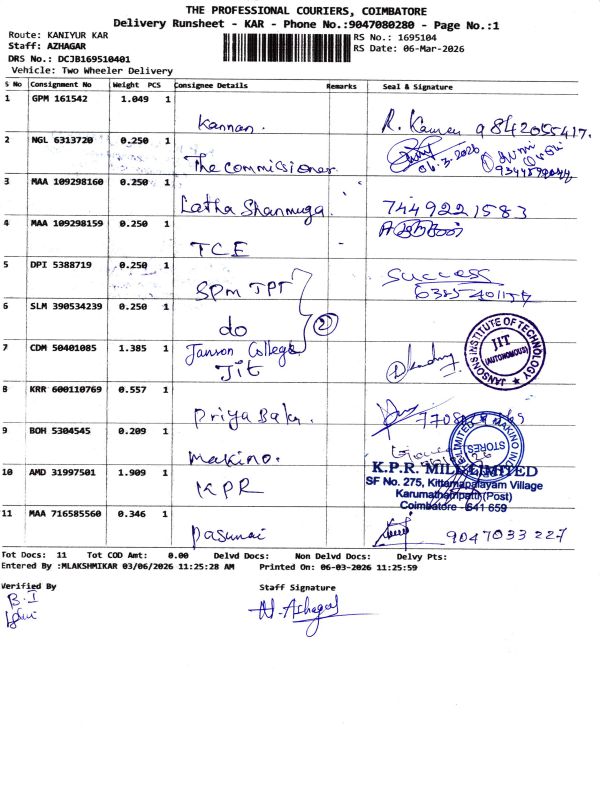 THE PROFESSIONAL COURIERS, COIMBATORE
Delivery Runsheet - KAR - Phone No.:9047080280 - Page No.:1
Route: KANIYUR KAR
RS No.: 1695104
Staff: AZHAGAR
RS Date: 06-Mar-2026
DRS No.: DCJB169510401
Vehicle: Two Wheeler Delivery
S No Consignment No Weight PCS Consignee Details Remarks Seal & Signature
1 GPM 161542 1.049 1
Kannan. R. Kannan 9842055417.
2 NGL 6313720 0.250 1
The commissioner 06.3.2026
3 MAA 109298160 0.250 1
Latha Shanmuga. 7449221583
4 MAA 109298159 0.250 1
TCE
5 DPI 5388719 0.250 1
SPM TPT Success
6 SLM 390534239 0.250 1
do 2
7 CDM 50401085 1.385 1
Janson College
JIT
JANSONS INSTITUTE OF TECHNOLOGY
JIT
(AUTONOMOUS)
8 KRR 600110769 0.557 1
Priya Baky.
9 BOH 5304545 0.209 1
Makino.
STORES
10 AMD 31997501 1.909 1
KPR
K.P.R. MILL LIMITED
SF No. 275, Kittampalayam Village
Karumathampatti (Post)
Coimbatore - 641 659
11 MAA 716585560 0.346 1
Dasunai 9047033227
Tot Docs: 11 Tot COD Amt: 0.00 Delvd Docs: Non Delvd Docs: Delvy Pts:
Entered By :MLAKSHMIKAR 03/06/2026 11:25:28 AM Printed On: 06-03-2026 11:25:59
Verified By Staff Signature
B. I
N. Azhagar